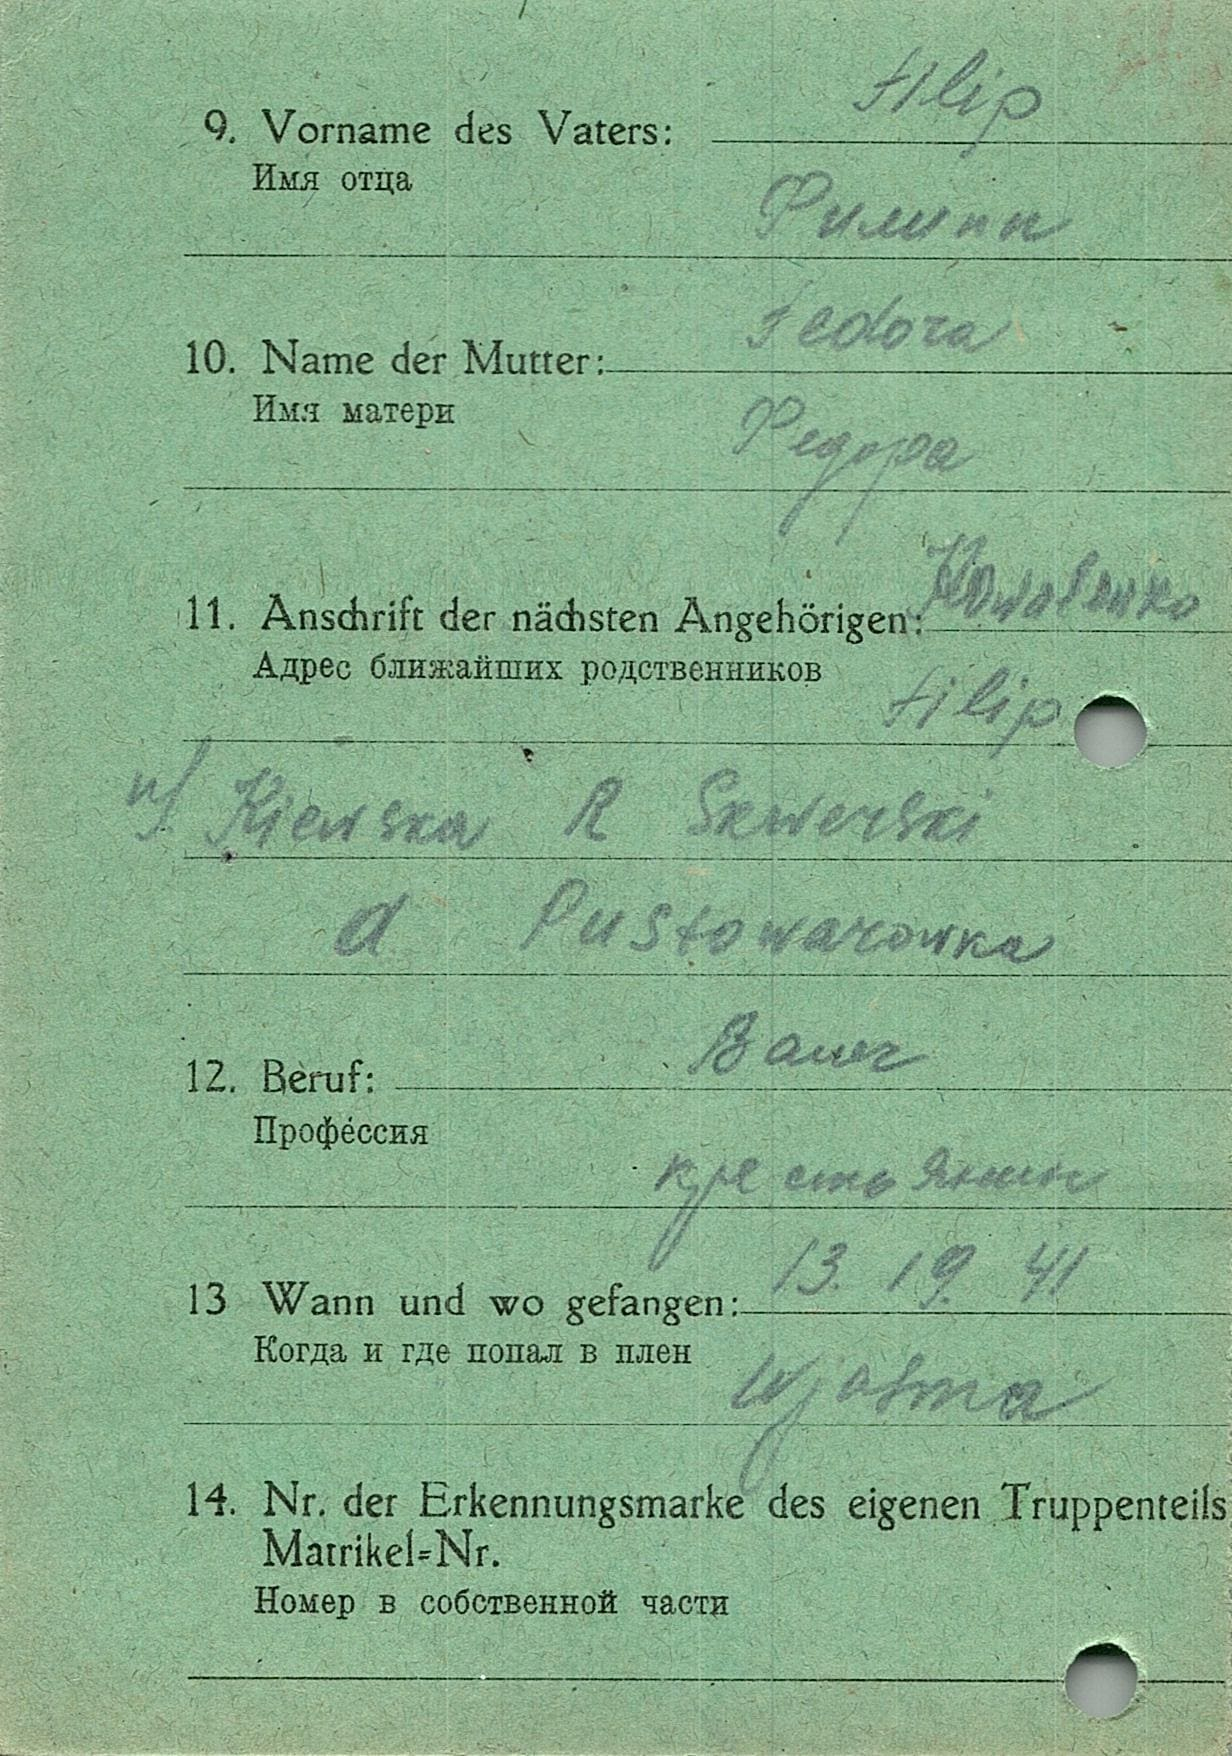 Filip
9. Vorname des Vaters:
Имя отца
Филипп
Fedora
10. Name der Mutter:
Имя матери
Федора
11. Anschrift der nächsten Angehörigen: Kowalenko
Адрес ближайших родственников
Filip
Kiewska R Skwerski
d Pustowarowka
12. Beruf: Bauer
Профéссия
крестьянин
13 Wann und wo gefangen: 13. 19. 41
Когда и где попал в плен
Wjasma
14. Nr. der Erkennungsmarke des eigenen Truppenteils
Matrikel=Nr.
Номер в собственной части